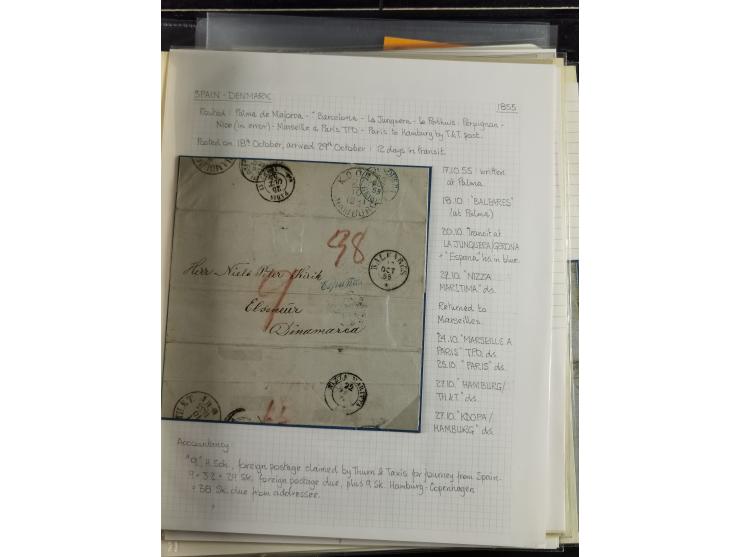 SPAIN - DENMARK
1855
Routed: Palma de Majorca - Barcelona - La Junquera - Le Perthuis - Perpignan -
Nice (in error) - Marseille a Paris TPO - Paris to Hamburg by T.&T. post.
Posted on 18th October, arrived 29th October : 12 days in transit.
17.10.55 : written
at Palma
18.10 : "BALEARES"
(at Palma)
20.10 Transit at
LA JUNQUERA/GERONA
+ "Espana" hs in blue.
22.10. "NIZZA
MARITIMA" ds.
Returned to
Marseilles.
24.10. "MARSEILLE A
PARIS" T.P.O. ds.
25.10. "PARIS" ds.
27.10. "HAMBURG/
TH.&T." ds.
27.10. "KDOPA/
HAMBURG" ds.
98
BALEARES
OCT
55
Herr Niels Peter
9
Elseneur
Dinamarca
NIZZA MARITTIMA
22
PARIS
HAMBURG
Accountancy
"9" H.Sch., foreign postage claimed by Thurn & Taxis for journey from Spain.
9 × 3.2 = 29 Sk. foreign postage due, plus 9 Sk. Hamburg-Copenhagen
= 38 Sk. due from addressee.